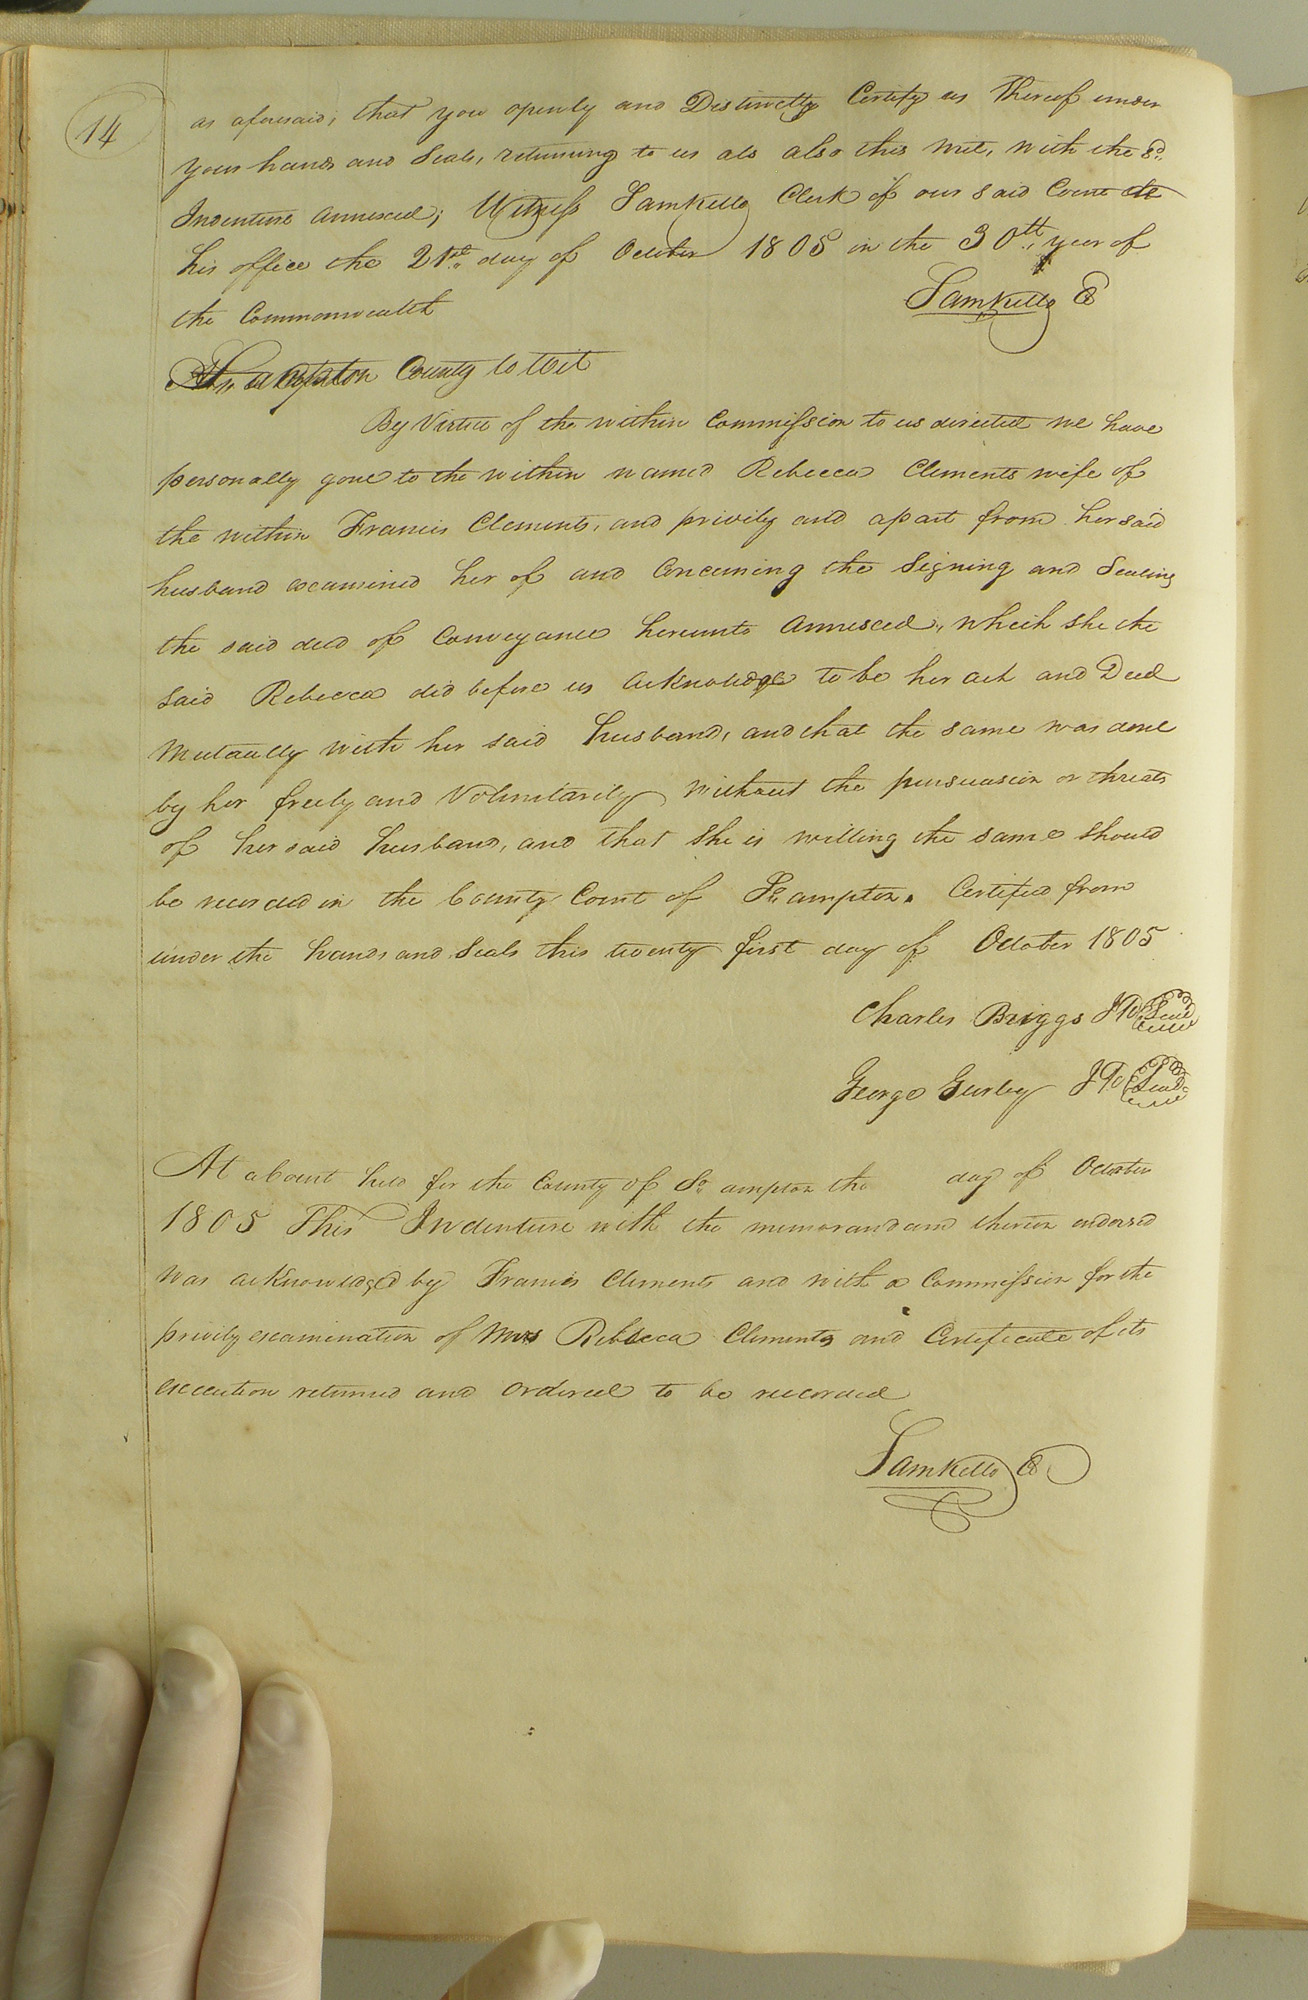 14
as aforesaid, that you openly and Distinctly Certify us thereof under
your hands and Seals, returning to us als also this writ, with the sd.
Indenture annexed; Witness Samkello Clerk of our said Court
his office the 21st. day of October 1805 in the 30th. year of
the Commonwealth
Samkello C
Southampton County to Wit
By Virtue of the within Commission to us directed we have
personally gone to the within named Rebecca Clements wife of
the within Francis Clements, and privily and apart from her said
husband examined her of and concerning the Signing and Sealing
the said deed of Conveyance hereunto annexed, which she the
said Rebecca did before us acknowledge to be her act and Deed
Mutually with her said husband, and that the same was done
by her freely and Voluntarily without the pursuasion or threats
of her said husband, and that she is willing the same should
be recorded in the County Court of So ampton. Certified from
under the hands and Seals this twenty first day of October 1805
Charles Briggs JP Seal
George Gurley JP Seal
At a Court held for the County of So ampton the day of October
1805 This Indenture with the memorandam thereon endorsed
was acknowledged by Francis Clements and with a Commission for the
privily examination of Mrs Rebecca Clements and Certificate of its
execution returned and ordered to be recorded
Samkello C